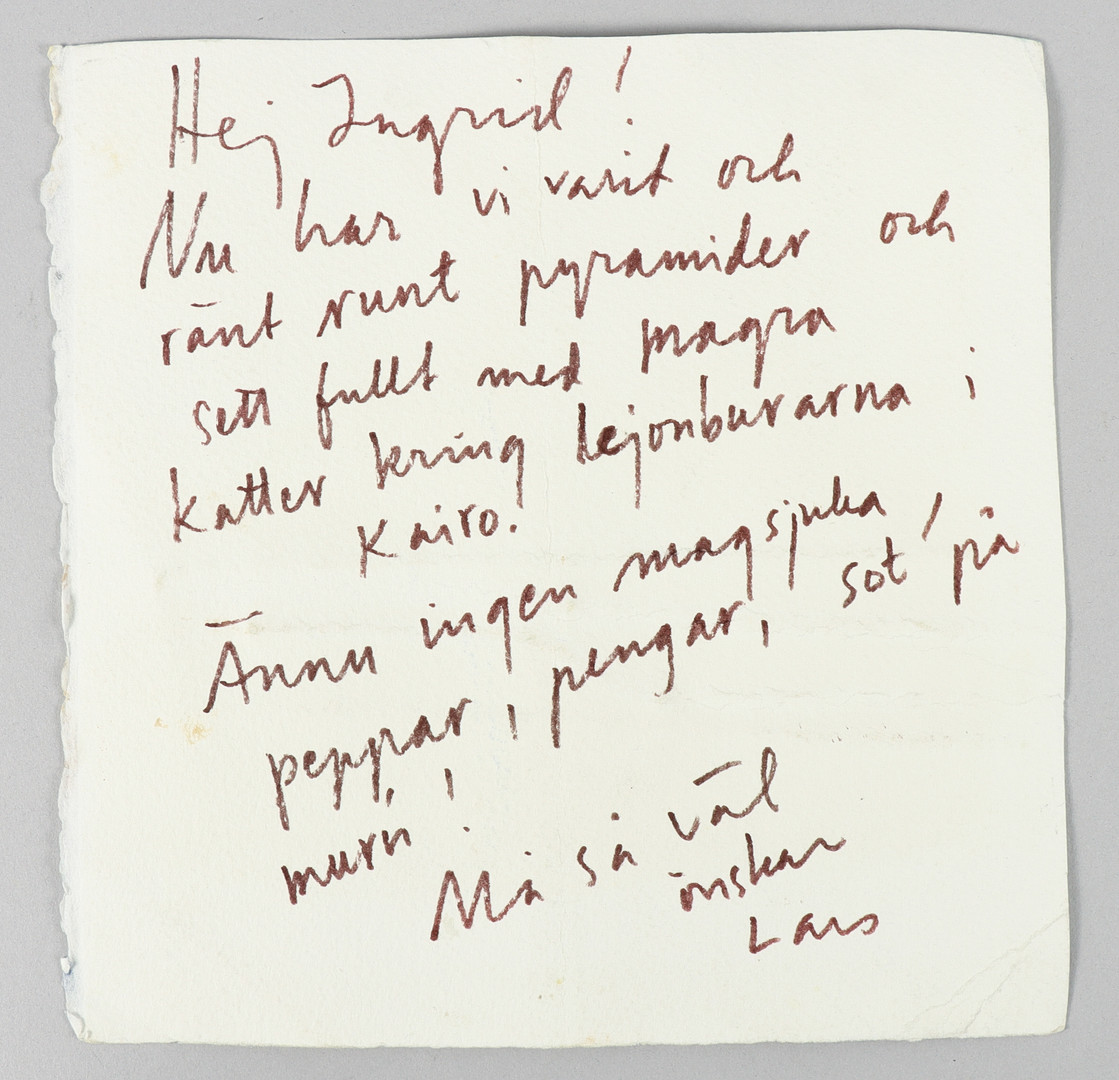 Hej Ingrid!
Nu har vi varit och
ränt runt pyramider och
sett fullt med magra
katter kring lejonburarna i
Kairo.
Ännu ingen magsjuka,
peppar, pengar, sot på
murn!
Må så väl
önskar
Lars